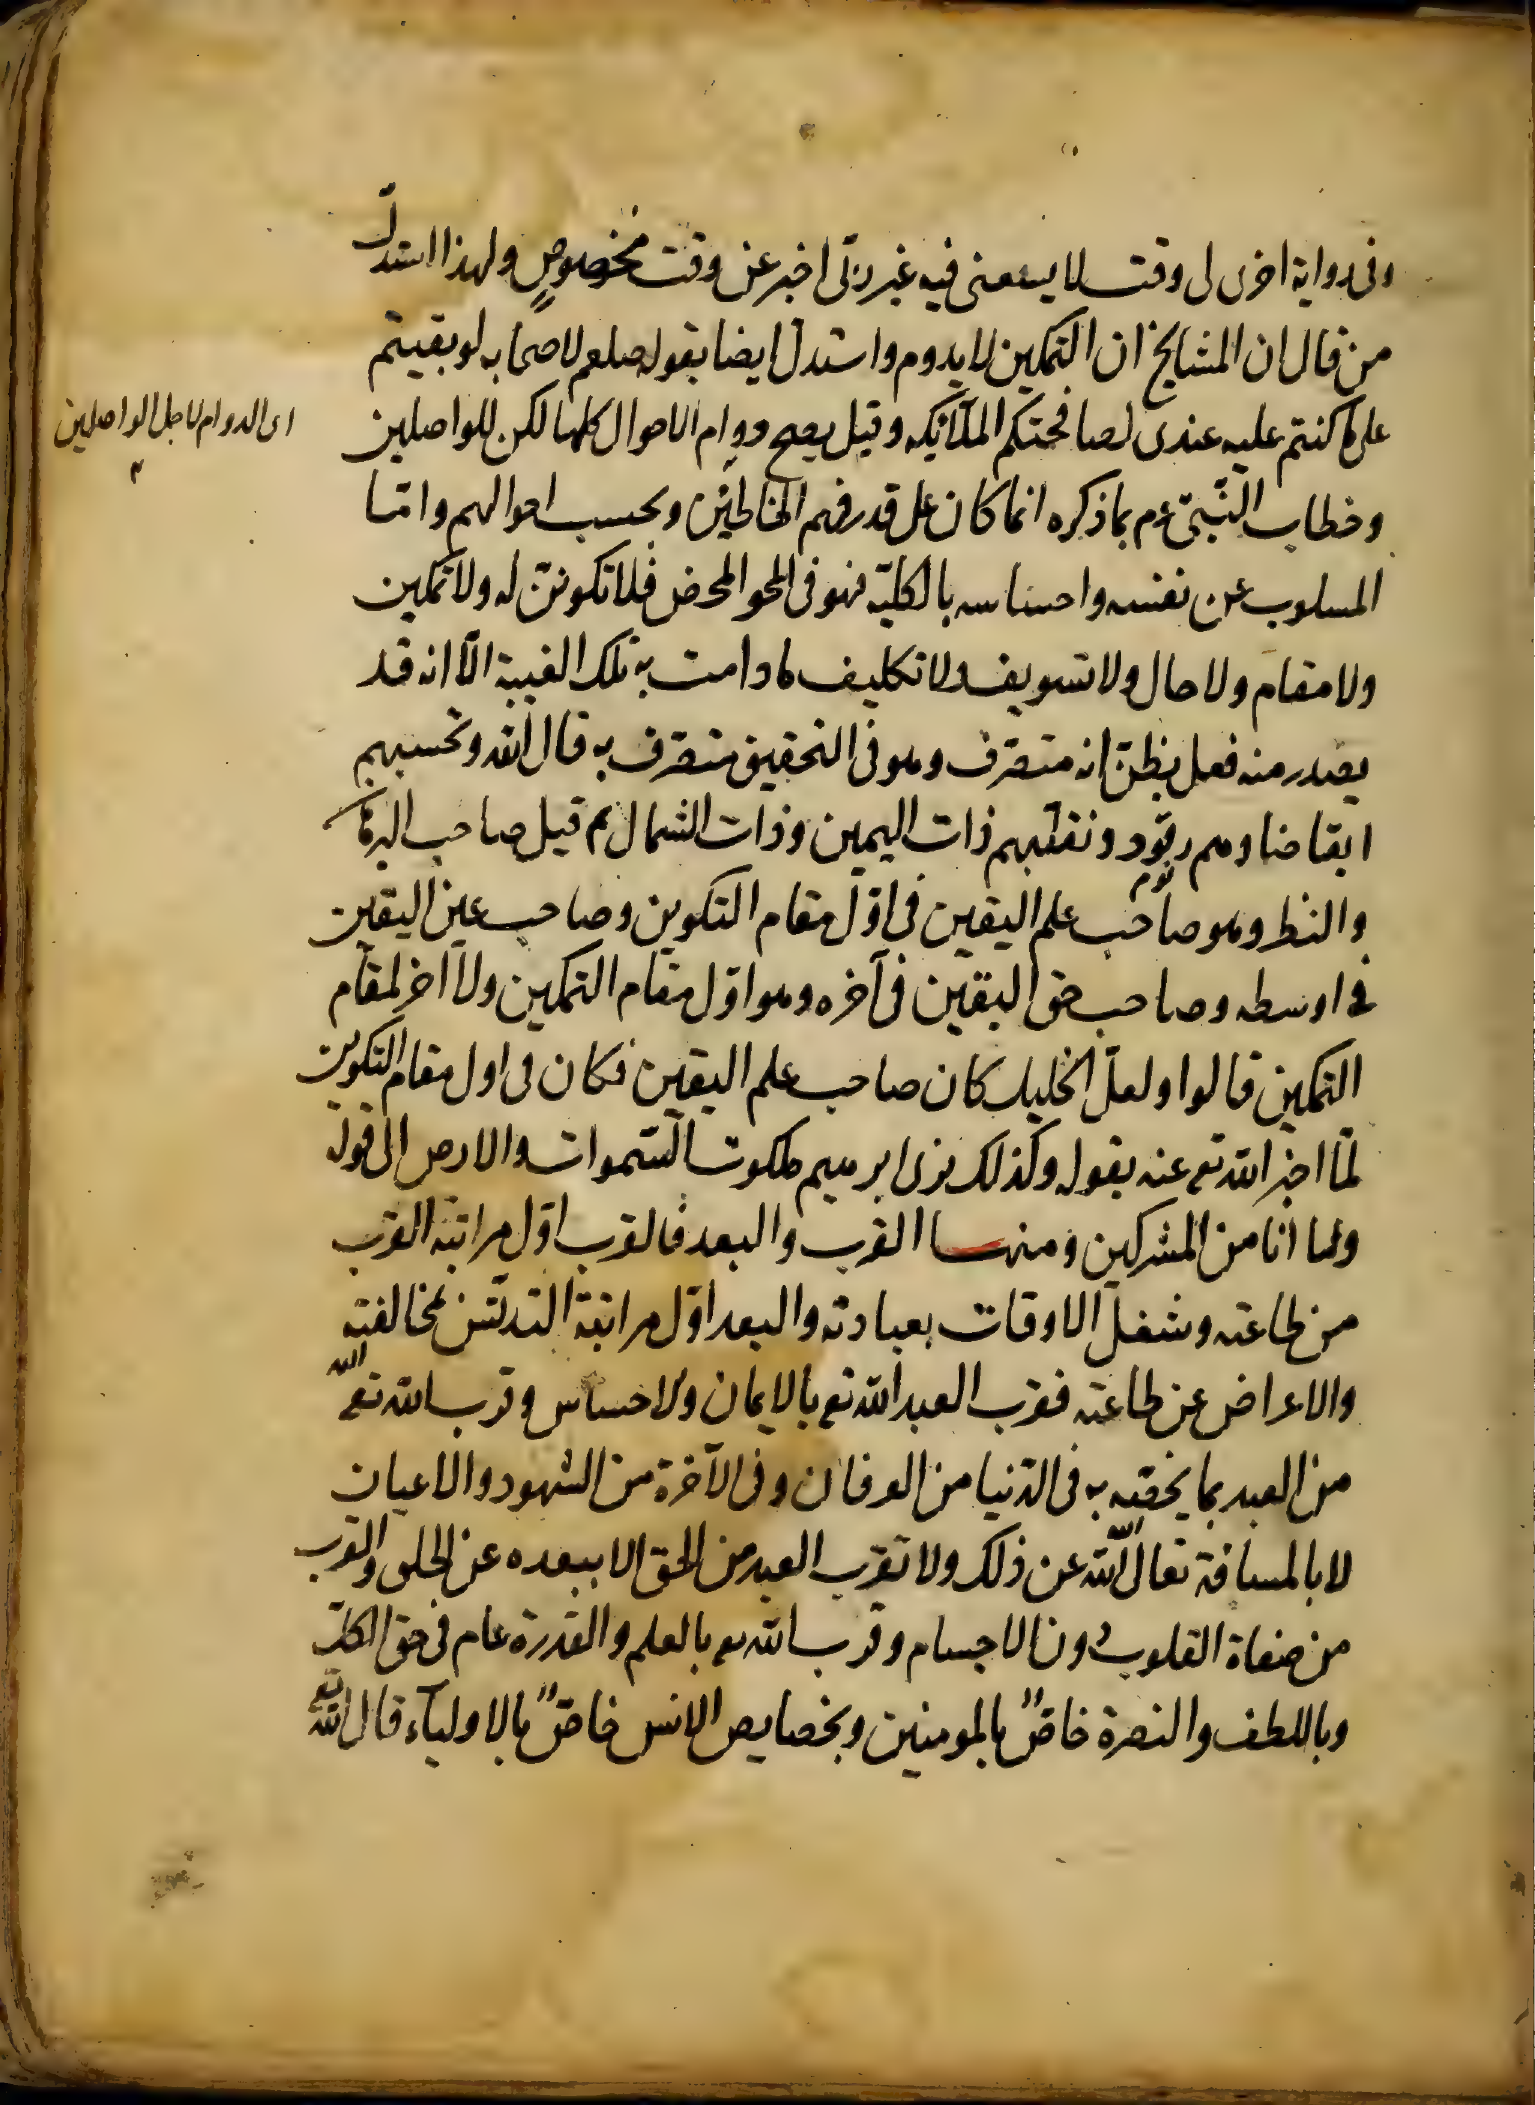 وفى رواية اخرى لى وقت لا يسعنى فيه غير ربّى اخبر عن وقت مخصوصٍ ولهذا استدلّ
من قال ان المشايخ ان التمكين لا يدوم واستدل ايضا بقوله صلعم لاصحابه لو بقيتم
على ما كنتم عليه عندى لصافحتكم الملآئكه وقيل يصح دوام الاحوال كلها لكن للواصلين
اى الدوام لاجل الواصلين
وخطاب النّبىّ عم بما ذكره انما كان على قدر فهم المخاطبين وبحسب احوالهم وامّا
المسلوب عن نفسه واحساسه بالكليّة فهو فى المحو المحض فلا تكوننّ له ولا تمكين
ولا مقام ولا حال ولا تسويف ولا تكليف ما دامت به تلك الغيبة الّا انه قد
يصدر منه فعل يظنّ انه متصّرف وهو فى التحقيق متصّرف به قال الله وتحسبهم
ايقاضا وهم رقود ونقلّبهم ذات اليمين وذات الشمال ثم قيل صاحب البرهان
نوم
والنظر وهو صاحب علم اليقين فى اوّل مقام التكوين وصاحب عين اليقين
فى اوسطه وصاحب حق اليقين فى آخره وهو اوّل مقام التمكين ولا آخر لمقام
التمكين قالوا ولعلّ الخليل كان صاحب علم اليقين فكان فى اول مقام التكوين
لمّا اخبر الله تع عنه بقوله وكذلك نرى ابرهيم ملكوت السّموات والارض الى قوله
وما انا من المشركين ومنها القرب والبعد فالقرب اوّل مراتبه القرب
من طاعته وشغل الاوقات بعبادته والبعد اوّل مراتبة التدنّس بمخالفته
والاعراض عن طاعته فقرب العبد الله تع بالايمان والاحساس وقرب الله تع
من العبد بما يخصّه به فى الدّنيا من العرفان وفى الآخرة من الشهود والاعيان
لا بالمسافة تعالى اللّه عن ذلك ولا تقرب العبد من الحق الا ببعده عن الخلق والقرب
من صفاة القلوب دون الاجسام وقرب الله تع بالعلم والقدرة عام فى حق الكلّ
وباللطف والنصرة خاصّ بالمومنين وبخصايص الانس خاصّ بالاوليآء قال الله تع